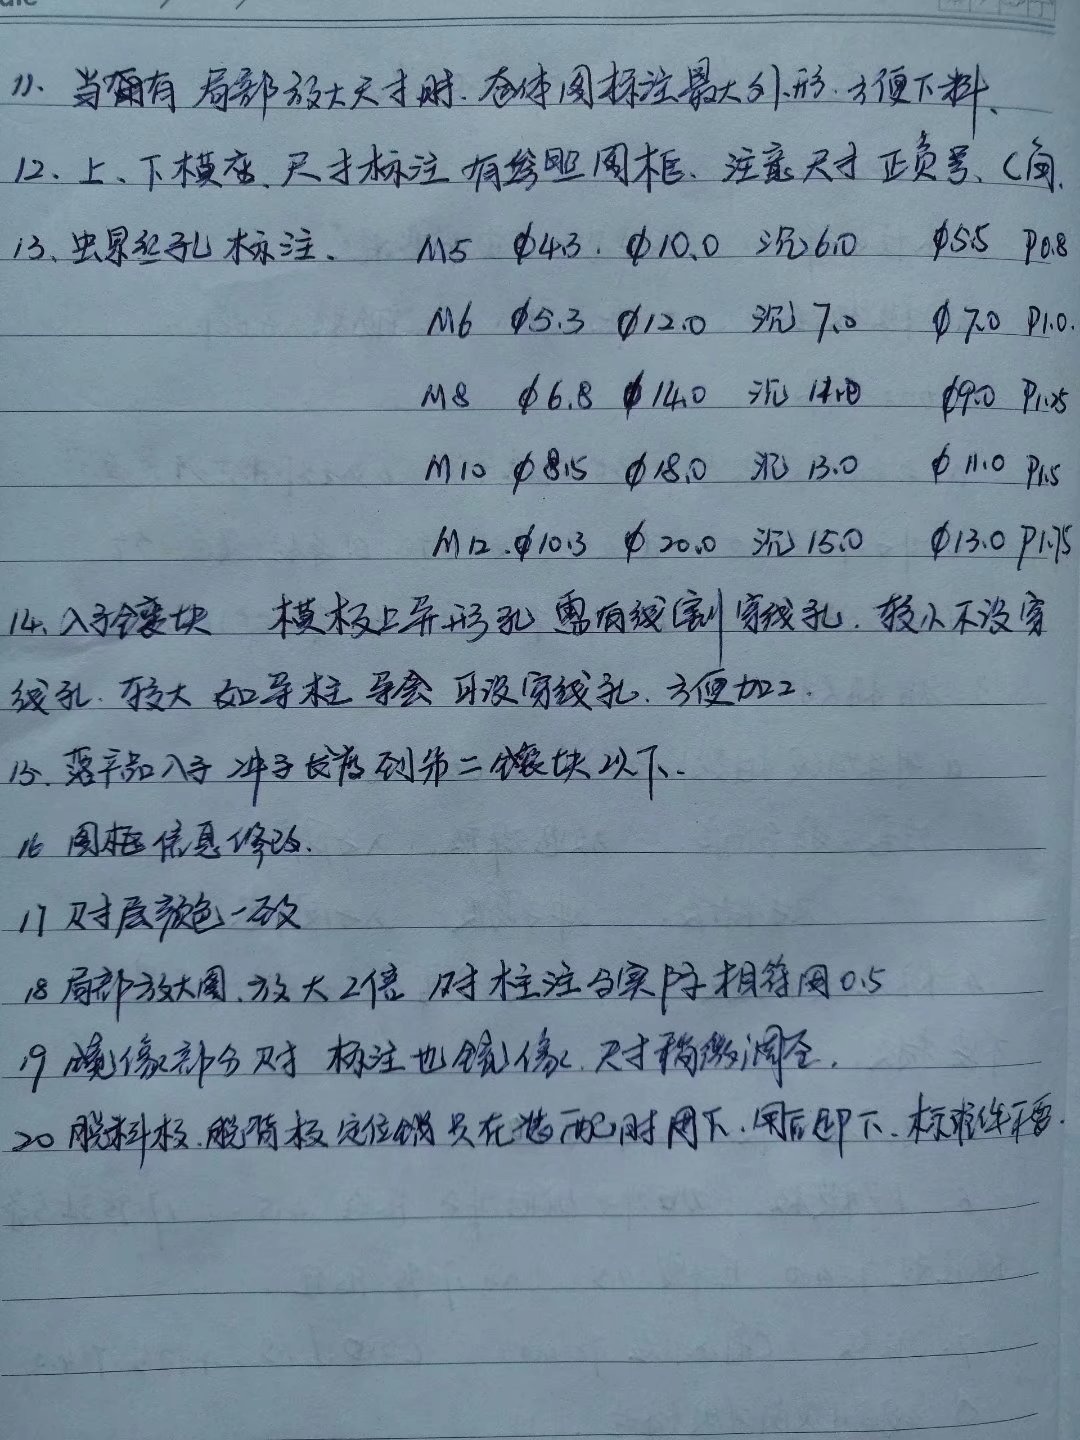 11、当有局部放大尺寸时.整体图标注最大外形.方便下料、
12、上、下模座、尺寸标注有参照图框、注意尺寸正负号、C角.
13、螺丝孔标注、 M5 ϕ4.3. ϕ10.0 沉6.0 ϕ5.5 P0.8
M6 ϕ5.3 ϕ12.0 沉7.0 ϕ7.0 P1.0.
M8 ϕ6.8 ϕ14.0 沉 ϕ9.0 P1.25
M10 ϕ8.5 ϕ18.0 沉13.0 ϕ11.0 P1.5
M12.ϕ10.3 ϕ20.0 沉15.0 ϕ13.0 P1.75
14、入子镶块 模板上异形孔需有线割穿线孔.较小不设穿
线孔.较大如导柱导套可设穿线孔.方便加工.
15.落产品入子冲子长度到第二镶块以下.
16 图框信息修改.
17 尺寸层颜色一致
18 局部放大图、放大2倍 尺寸标注与实际相符用0.5
19 镜像部分尺寸标注也镜像、尺寸稍微调整.
20 脱料板.脱背板定位销只在装配时用下.用后卸下.标准件不需.